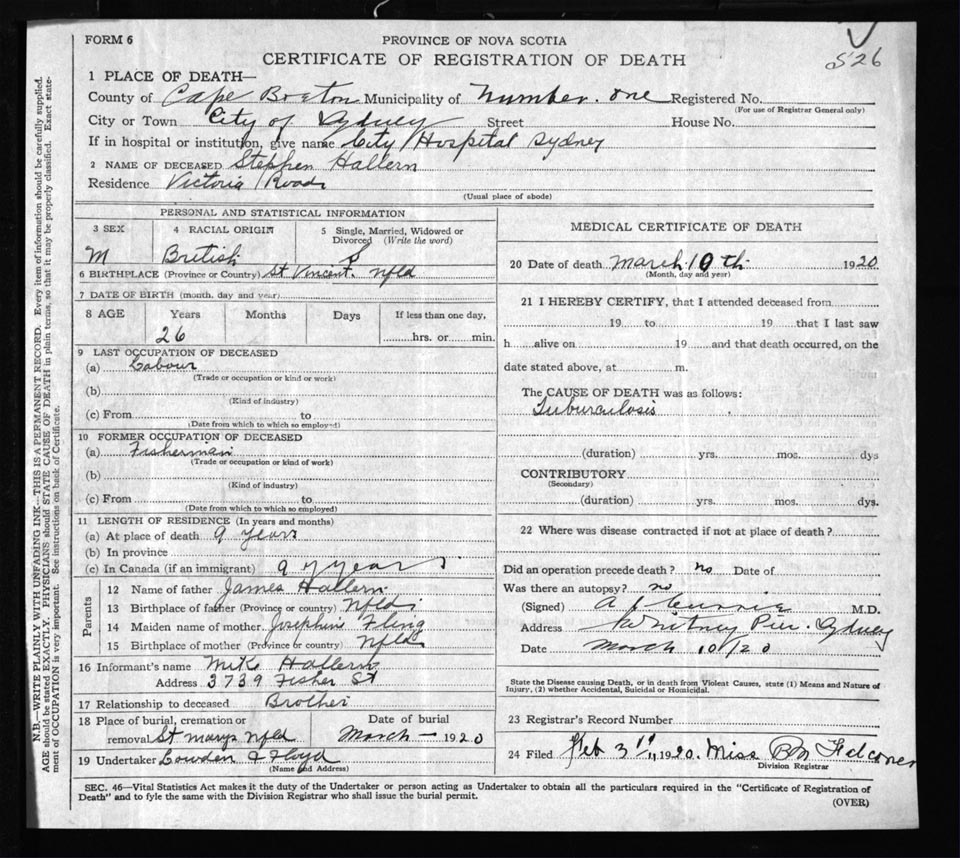 FORM 6
PROVINCE OF NOVA SCOTIA
CERTIFICATE OF REGISTRATION OF DEATH
S26
N.B.—WRITE PLAINLY WITH UNFADING INK—THIS IS A PERMANENT RECORD. Every item of information should be carefully supplied.
AGE should be stated EXACTLY. PHYSICIANS should STATE CAUSE OF DEATH in plain terms, so that it may be properly classified. Exact state-
ment of OCCUPATION is very important. See instructions on back of Certificate.
1 PLACE OF DEATH—
County of Cape Breton Municipality of Number. one Registered No.
(For use of Registrar General only)
City or Town City of Sydney Street House No.
If in hospital or institution, give name City Hospital Sydney
2 NAME OF DECEASED Stephen Hallern
Residence Victoria Road
(Usual place of abode)
PERSONAL AND STATISTICAL INFORMATION
3 SEX 4 RACIAL ORIGIN 5 Single, Married, Widowed or Divorced (Write the word)
M British S
6 BIRTHPLACE (Province or Country) St Vincent. Nfld
7 DATE OF BIRTH (month, day and year)
8 AGE Years Months Days If less than one day,
26 hrs. or min.
9 LAST OCCUPATION OF DECEASED
(a) Labour
(Trade or occupation or kind or work)
(b)
(Kind of industry)
(c) From to
(Date from which to which so employed)
10 FORMER OCCUPATION OF DECEASED
(a) Fisherman
(Trade or occupation or kind of work)
(b)
(Kind of industry)
(c) From to
(Date from which to which so employed)
11 LENGTH OF RESIDENCE (In years and months)
(a) At place of death 9 years
(b) In province
(c) In Canada (if an immigrant) 9 years
Parents
12 Name of father James Hallern
13 Birthplace of father (Province or country) Nfld
14 Maiden name of mother Josephine Fling
15 Birthplace of mother (Province or country) Nfld
16 Informant's name Mike Hallern
Address 3739 Fisher St
17 Relationship to deceased Brother
18 Place of burial, cremation or Date of burial
removal St marys Nfld March — 1920
19 Undertaker Lowden & Floyd
(Name and Address)
MEDICAL CERTIFICATE OF DEATH
20 Date of death March 10th 1920
(Month, day and year)
21 I HEREBY CERTIFY, that I attended deceased from
19 to 19 that I last saw
h alive on 19 and that death occurred, on the
date stated above, at m.
The CAUSE OF DEATH was as follows:
Tuburculosis
(duration) yrs. mos. dys
CONTRIBUTORY
(Secondary)
(duration) yrs. mos. dys.
22 Where was disease contracted if not at place of death?
Did an operation precede death? no Date of
Was there an autopsy? no
(Signed) A J Currie M.D.
Address Whitney Pier. Sydney
Date March 10/20
State the Disease causing Death, or in death from Violent Causes, state (1) Means and Nature of
Injury, (2) whether Accidental, Suicidal or Homicidal.
23 Registrar's Record Number
24 Filed Feb 1920. Miss B M Falconer
Division Registrar
SEC. 46—Vital Statistics Act makes it the duty of the Undertaker or person acting as Undertaker to obtain all the particulars required in the "Certificate of Registration of
Death" and to fyle the same with the Division Registrar who shall issue the burial permit.
(OVER)